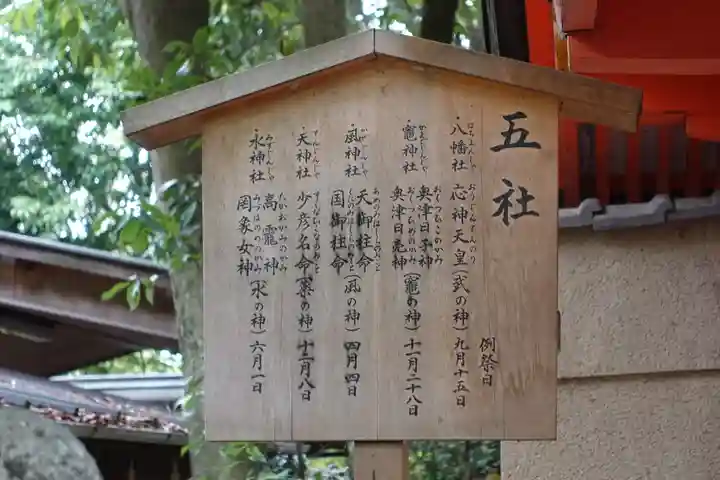 五社
例祭日
八幡社 応神天皇(武の神)九月十五日
竈神社 奥津日子神
奥津日売神(竈の神)十一月二十八日
風神社 天御柱命
国御柱命(風の神)四月四日
天神社 少彦名命(薬の神)十二月八日
水神社 高龗神
罔象女神(水の神)六月一日